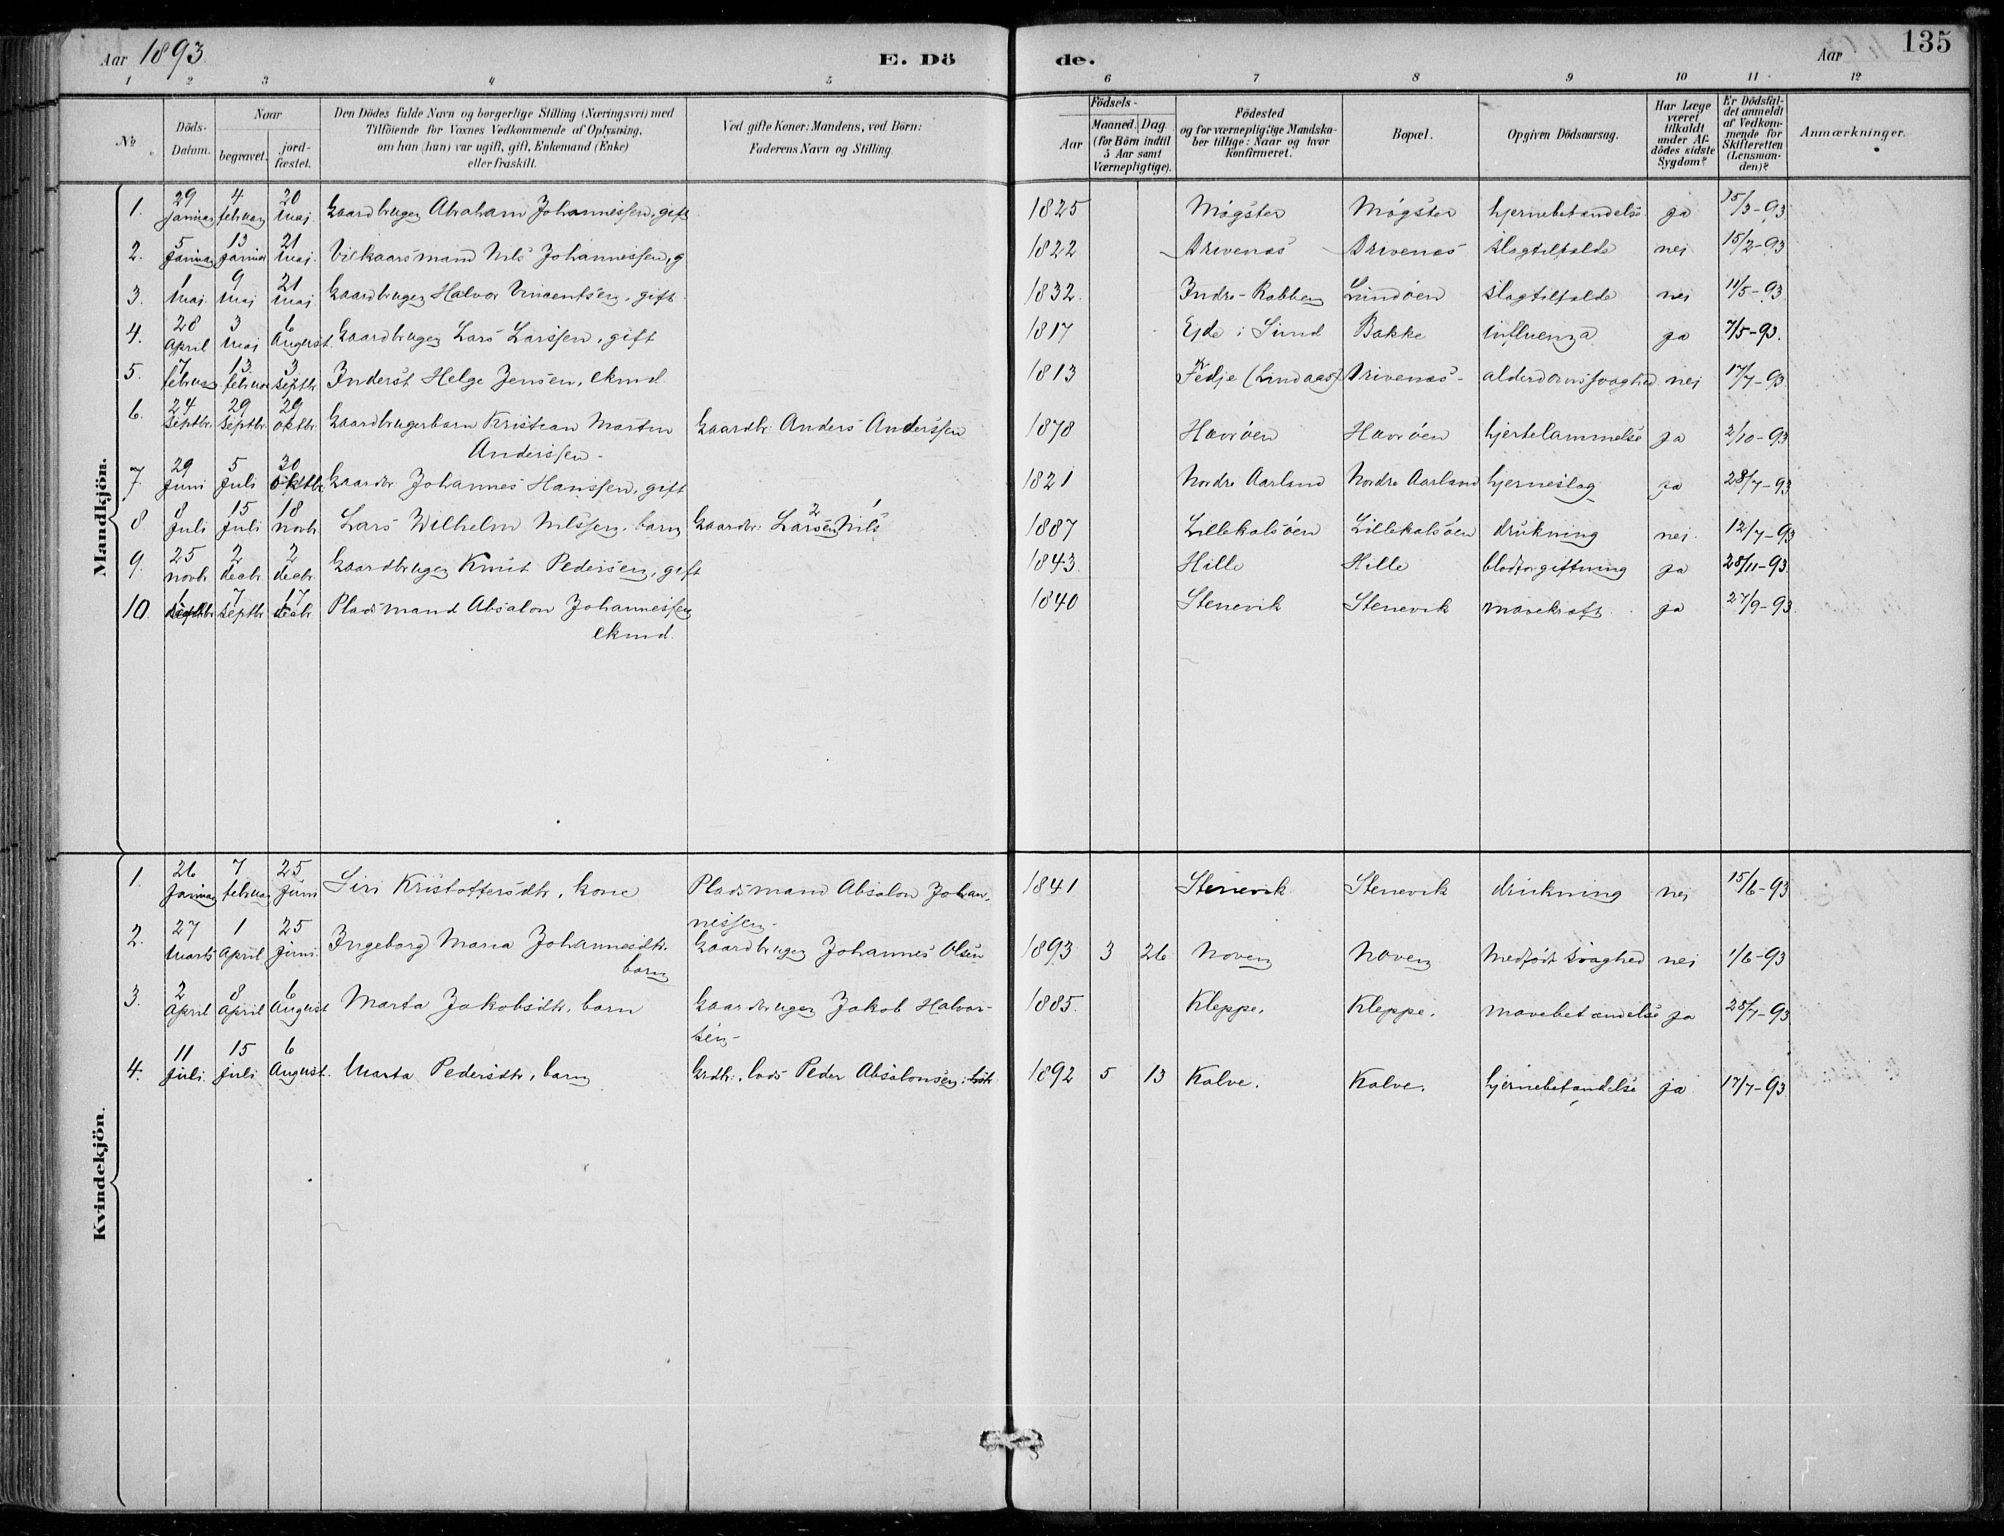 Aar 1893 E. Dö de. Aar 135
1 2 3 4 5 6 7 8 9 10 11 12
No. Döds-Datum. Naar begravet. jord-fæstet. Den Dödes fulde Navn og borgerlige Stilling (Næringsvei) med Tilföiende for Voxnes Vedkommende af Oplysning, om han (hun) var ugift, gift, Enkemand (Enke) eller fraskilt. Ved gifte Koner: Mandens, ved Börn: Faderens Navn og Stilling. Födsels- Aar Maaned. Dag. (for Börn indtil 5 Aar samt Værnepligtige). Födested og for værnepligtige Mandskaber tillige: Naar og hvor Konfirmeret. Bopæl. Opgiven Dödsaarsag. Har Læge været tilkaldt under Afdödes sidste Sygdom? Er Dödsfaldet anmeldt af Vedkommende for Skifteretten (Lensmanden)? Anmærkninger.
Mandkjön.
1. 29 Januar 4 februar 20 Maj Gaardbruger Abraham Johannessen, gift 1825 Møgster Møgster hjernebetændelse ja 15/3-93
2. 5 Januar 13 Januar 21 Maj. Vilkaarsmand Nils Johannessen, g 1822 Drivenæs Drivenæs slagtilfælde nei 15/2-93
3. 1 Maj. 9 Maj 21 Maj Gaardbruger Halvor Vincentsen, gift 1832. Indre-Rabben Lundøen slagtilfælde nei 11/5-93
4. 28 April 3 Maj 6 Augusst. Gaardbruger Lars Larssen, gift 1817 Eide i Sund Bakke influenza ja 7/5-93.
5. 7 februar 13. februar 3 septbr. Inderst Helge Jensen, ekmd. 1813 Fedje (Lindaas) Drivenæs- alderdomssvaghed nei 17/7-93
6. 24 septbr. 29 septbr. 29 oktbr. Gaardbrugerbarn Kristian Marten Gaardbr. Anders Anderssen 1878 Havrøen Havrøen hjertelammelse ja 2/10-93
Anderssen-
7. 29 Juni 5 Juli 30 oktbr. Gaardbr Johannes Hanssen, gift 1821 Nordre Aarland Nordre Aarland hjerneslag ja 28/7-93
8 8 Juli 15 Juli 18 Novbr. Lars Wilhelm Nilssen, barn Gaardbr. Larsen 2 Nils 1 1887 Lillekalsøen Lillekalsøen drukning nei. 12/7-93
9. 25 novbr. 2 decbr. 2 decbr. Gaardbruger Knut Pedersen, gift 1843. Hille Hille blodforgiftning ja 28/11-93.
10. 1 septbr. 7 septbr 17 decbr. Pladsmand Absalon Johannessen 1840 Stenevik Stenevik mavekræft. ja 27/9-93.
ekmd.
Kvindekjön.
1. 26 Januar 7 februar 25 Juni Siri Kristoffersdtr, kone Pladsmand Absalon Johan- 1841 Stenevik Stenevik drukning nei 15/6-93
nessen-
2. 27 Marts 1 April 25 Juni. Ingeborg Maria Johannesdtr. Gaardbruger Johannes Olsen 1893 3 26 Noven Noven Medfødt svaghed nei 1/6-93
barn
3. 2 April 8 April 6 August Marta Jakobsdtr, barn Gaardbruger Jakob Halvor- 1885. Kleppe. Kleppe. mavebetændelse ja 28/7-93
sen-
4. 11 Juli. 15 Juli 6 August. Marta Pedersdtr, barn Grdbr., lods Peder Absalonsen 1892 5 13 Kalve. Kalve. hjernebetændelse ja 17/7-93